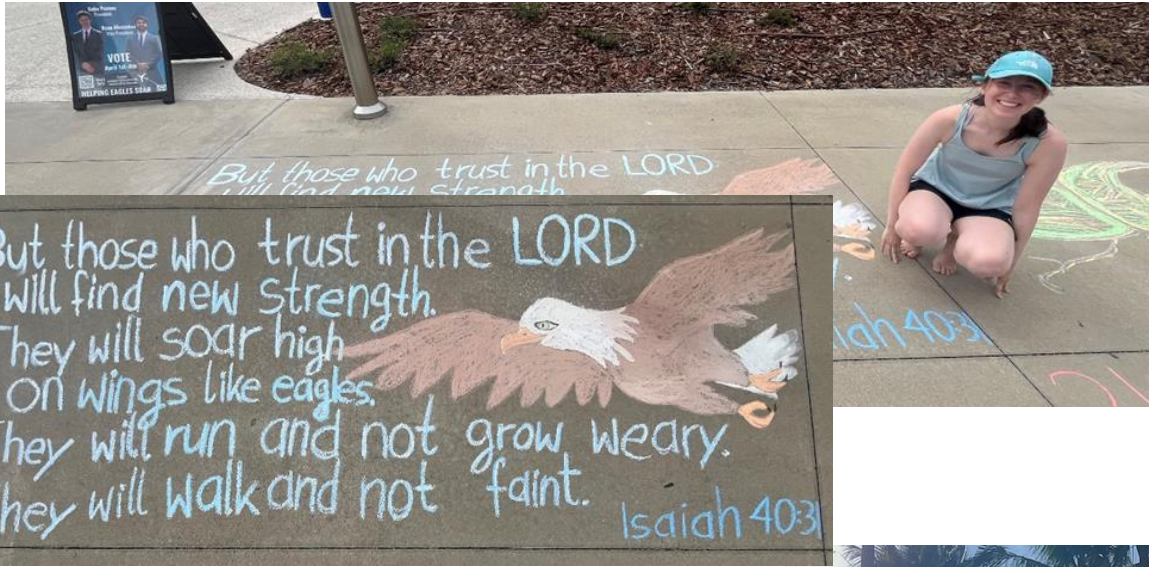 VOTE
April 1st-4th
HELPING EAGLES SOAR
But those who trust in the LORD
will find new strength.
But those who trust in the LORD
will find new strength.
They will soar high
on wings like eagles.
They will run and not grow weary.
They will walk and not faint.
Isaiah 40:31